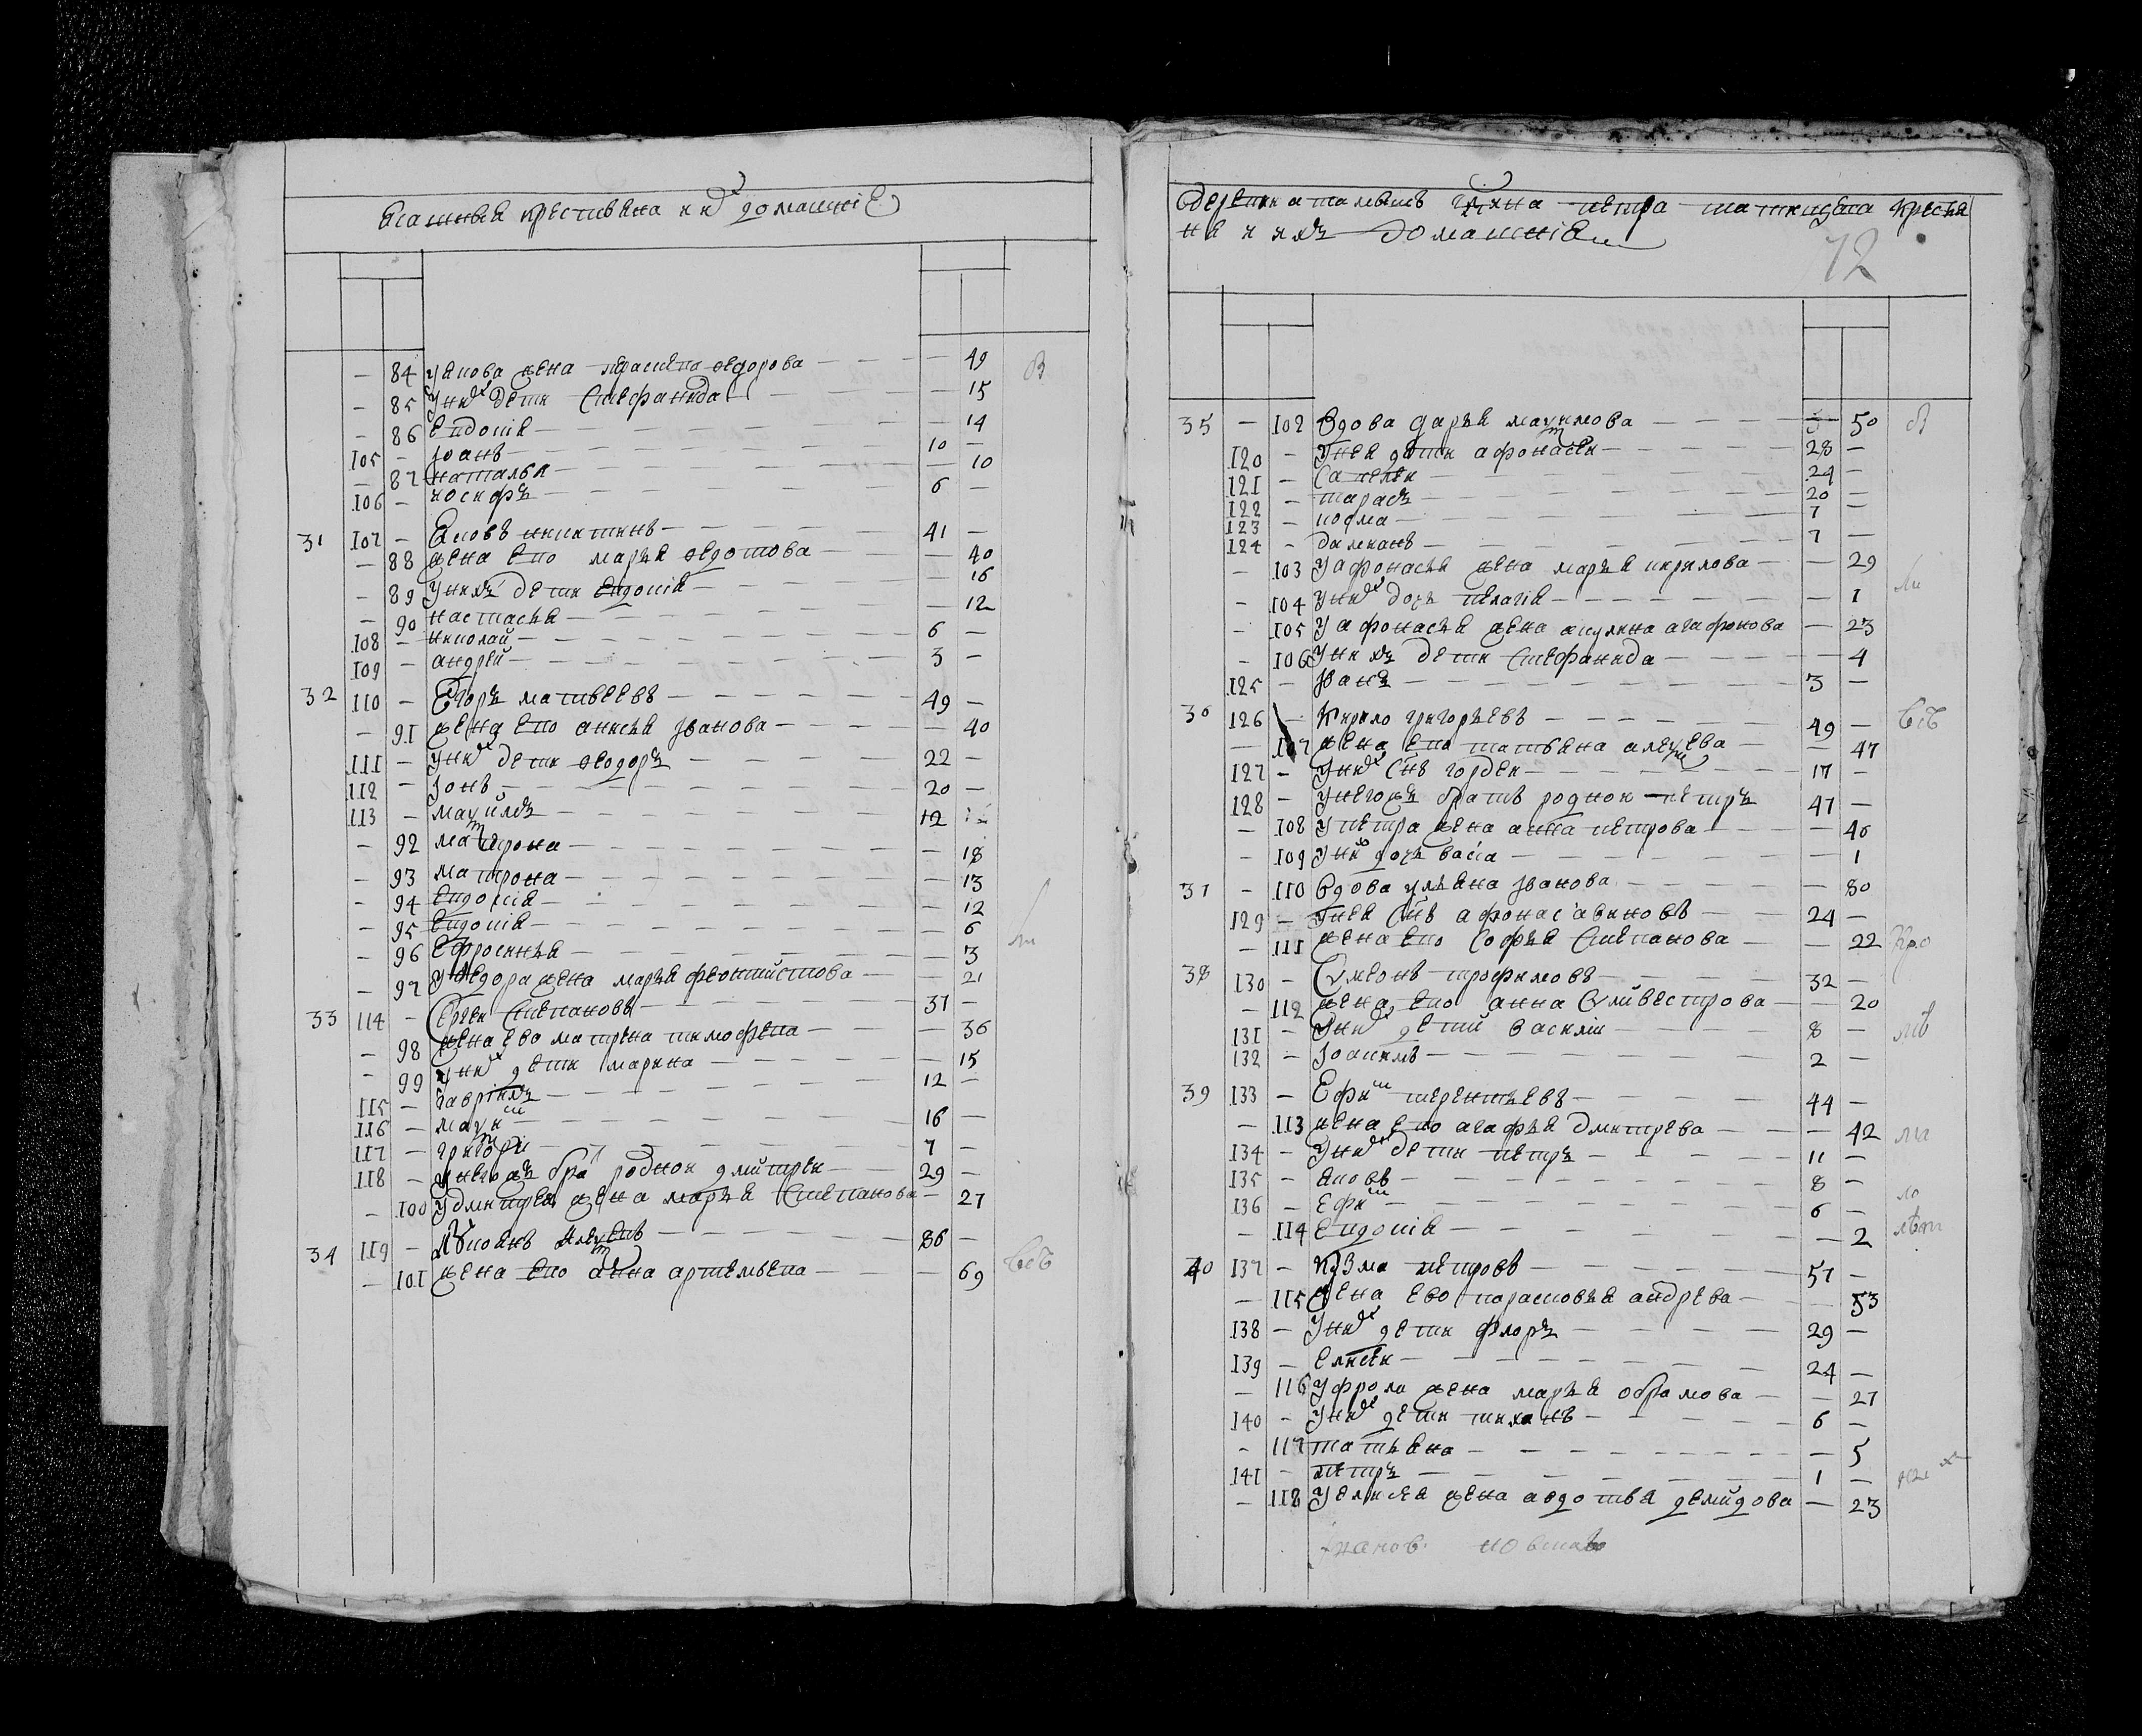 ясашныя крестьяна и их домашнiе
— 84 у якова жена прасковя федорова — 49 в
— 85 У них дети Стефанида — 15
— 86 Евдокiя — 14
105 — Iоанъ 10 —
— 87 наталья — 10
106 — иосифъ 6 —
31 107 — Яковъ никитинъ 41 —
— 88 жена ево марья федотова — 40
— 89 У нихъ дети Евдокiя — 16
— 90 настасья — 12
108 — николай 6 —
109 — андрей 3 —
32 110 — Егоръ матвеевъ 49 —
— 91 жена ево анисья Iванова — 40
111 — У них дети феодоръ 22 —
112 — Iонъ 20 —
113 — 12
— 92 матрона — 18
— 93 матрона — 13
— 94 Евдокiя — 12
— 95 Евдокiя — 6
— 96 Ефросинья — 3
— 97 У федора жена марья феоктистова — 21
33 114 — Сергеи Степановъ 37 —
— 98 жена ево матрена тимофева — 36
— 99 У них дети марина — 15
115 — гаврiилъ 12 —
116 — 16 —
117 — григорiи 7 —
118 — У него жъ брат роднои дмитреи 29 —
— 100 У дмитрея жена марья Степанова — 27
34 119 — 86 —
— 101 жена ево анна артемьева — 69
деревни петра крестья
не и ихъ домашнiя
72
35 — 102 Вдова дарья максимова — 50 в
120 — У нея дети афонасеи 28 —
121 — Савелеи 24 —
122 — тарасъ 20 —
123 — козма 7 —
124 — дамианъ 7 —
— 103 У афонасья жена марья кирилова — 29
— 104 У них дочь пелагiя — 1
— 105 У афонасья жена акулина агафонова — 23
— 106 У нихъ дети Стефанида — 4
125 — Iванъ 3 —
36 126 — Кирило григорьевъ 49 —
— 107 жена ево татьяна алексева — 47
127 — У них Снъ гордеи 17 —
128 — У него жъ братъ роднои петръ 47 —
— 108 У петра жена анна петрова — 46
— 109 У них дочь васса — 1
37 — 110 Вдова ульяна Iванова — 80
129 — У нея Снъ афонасе 24 —
— 111 жена ево Софья Степанова — 22
38 130 — Симеонъ трофимовъ 32 —
— 112 жена ево анна Силивестрова — 20
131 — У них дети василiи 8 —
132 — Iоакимъ 2 —
39 133 — Ефим терентьевъ 44 —
— 113 жена ево агафья дмитрева — 42
134 — У них дети петръ 11 —
135 — яковъ 8 —
136 — Ефим 6 —
— 114 Евдокiя — 2
40 137 — Кузма петровъ 57 —
— 115 жена ево парасковья андрева — 53
138 — У них дети флоръ 29 —
139 — Елисеи 24 —
— 116 У фрола жена марья обрамова — 27
140 — У них дети тиханъ 6 —
— 117 татьяна — 5
141 — петръ 1 —
— 118 У елисея жена авдотья демидова — 23